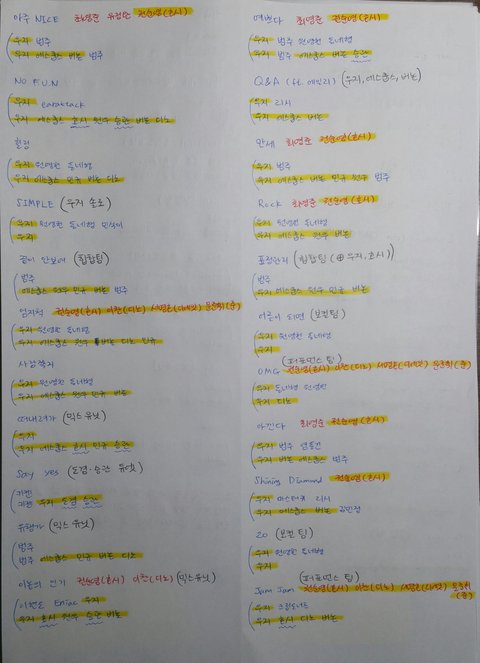 아주 NICE 최영준 유정수 권순영(호시)
우지 범주
우지 에스쿱스 버논 범주
NO F.U.N
우지 earattack
우지 에스쿱스 호시 원우 승관 버논 디노
힐링
우지 원영헌 동네형
우지 에스쿱스 민규 버논 디노
SIMPLE (우지 솔로)
우지 원영헌 동네형
우지
끝이 안보여 (힙합팀)
범주
에스쿱스 원우 민규 버논 범주
엄지척 권순영(호시) 이찬(디노) 서명호(디에잇) 문준휘(준)
우지 원영헌 동네형
우지 에스쿱스 원우 버논 디노 민규
사랑쪽지
우지 원영헌 동네형
우지 에스쿱스 원우 민규 버논
떠내려가 (믹스유닛)
우지
우지 에스쿱스 호시 민규 승관
Say yes (도겸·승관 유닛)
우지 도겸 승관
유행가 (믹스 유닛)
범주
범주 에스쿱스 민규 버논 디노
이놈의 인기 권순영(호시) 이찬(디노) (믹스유닛)
Eniac 우지
우지 호시 원우 승관 버논
예쁘다 최영준 권순영(호시)
우지 범주 원영헌 동네형
우지 범주 에스쿱스 버논 승관
Q&A (ft. 에일리) (우지, 에스쿱스, 버논)
우지 리시
우지 에스쿱스 버논
만세 최영준 권순영(호시)
우지 범주
우지 에스쿱스 버논 민규 원우 범주
Rock 최영준 권순영(호시)
우지 원영헌 동네형
우지 에스쿱스 원우 버논
표정관리 (힙합팀 (⊕우지,호시))
범주
우지 에스쿱스 원우 민규 버논
어른이 되면 (보컬팀)
우지 원영헌 동네형
우지
(퍼포먼스팀)
OMG 권순영(호시) 이찬(디노) 서명호(디에잇) 문준휘(준)
우지 동네형 원영헌
우지 디노
아낀다 최영준 권순영(호시)
우지 범주
우지 버논 에스쿱스 범주
Shining Diamond 권순영(호시)
우지 마스터키 리시
우지 에스쿱스 김민정
20 (보컬팀)
우지 원영헌 동네형
우지
(퍼포먼스팀)
Jam Jam 권순영(호시) 이찬(디노) 서명호(디에잇) 문준휘(준)
우지
우지 호시 디노 버논